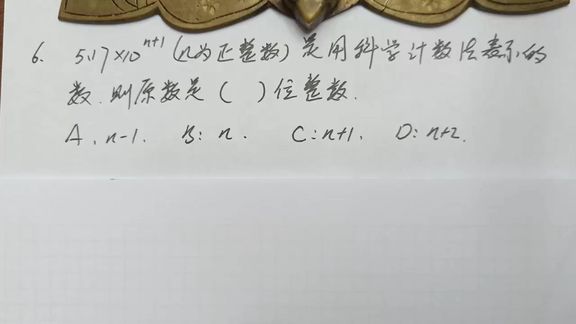 6. 5.17×10ⁿ⁺¹(n为正整数)是用科学计数法表示的
数.则原数是( )位整数.
A. n-1. B: n. C: n+1. D: n+2.